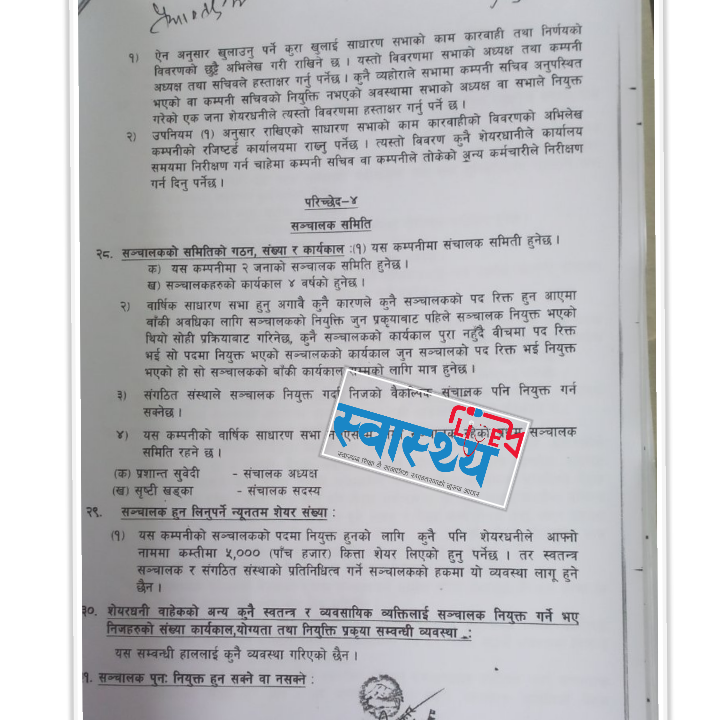 १) ऐन अनुसार खुलाउनु पर्ने कुरा खुलाई साधारण सभाको काम कारवाही तथा निर्णयको
विवरणको छुट्टै अभिलेख गरी राखिने छ । यस्तो विवरणमा सभाको अध्यक्ष तथा कम्पनी
अध्यक्ष तथा सचिवले हस्ताक्षर गर्नु पर्नेछ । कुनै व्यहोराले सभामा कम्पनी सचिव अनुपस्थित
भएको वा कम्पनी सचिवको नियुक्ति नभएको अवस्थामा सभाको अध्यक्ष वा सभाले नियुक्त
गरेको एक जना शेयरधनीले त्यस्तो विवरणमा हस्ताक्षर गर्नु पर्ने छ ।
२) उपनियम (१) अनुसार राखिएको साधारण सभाको काम कारवाहीको विवरणको अभिलेख
कम्पनीको रजिष्टर्ड कार्यालयमा राख्नु पर्नेछ । त्यस्तो विवरण कुनै शेयरधानीले कार्यालय
समयमा निरीक्षण गर्न चाहेमा कम्पनी सचिव वा कम्पनीले तोकेको अन्य कर्मचारीले निरीक्षण
गर्न दिनु पर्नेछ ।
परिच्छेद-४
सञ्चालक समिति
२८. सञ्चालकको समितिको गठन, संख्या र कार्यकाल :(१) यस कम्पनीमा संचालक समिती हुनेछ ।
क) यस कम्पनीमा २ जनाको सञ्चालक समिति हुनेछ ।
ख) सञ्चालकहरुको कार्यकाल ४ वर्षको हुनेछ ।
२) वार्षिक साधारण सभा हुनु अगावै कुनै कारणले कुनै सञ्चालकको पद रिक्त हुन आएमा
बाँकी अवधिका लागि सञ्चालकको नियुक्ति जुन प्रकृयाबाट पहिले सञ्चालक नियुक्त भएको
थियो सोही प्रक्रियाबाट गरिनेछ, कुनै सञ्चालकको कार्यकाल पुरा नहुँदै वीचमा पद रिक्त
भई सो पदमा नियुक्त भएको सञ्चालकको कार्यकाल जुन सञ्चालको पद रिक्त भई नियुक्त
भएको हो सो सञ्चालकको बाँकी कार्यकाल सम्मको लागि मात्र हुनेछ ।
३) संगठित संस्थाले सञ्चालक नियुक्त गर्दा निजको वैकल्पिक संचालक पनि नियुक्त गर्न
सक्नेछ ।
४) यस कम्पनीको वार्षिक साधारण सभा सञ्चालक
समिति रहने छ ।
(क) प्रशान्त सुवेदी - संचालक अध्यक्ष
(ख) सृष्टी खड्का - संचालक सदस्य
स्वास्थ्य
LIVES
२९. सञ्चालक हुन लिनुपर्ने न्यूनतम शेयर संख्या :
(१) यस कम्पनीको सञ्चालकको पदमा नियुक्त हुनको लागि कुनै पनि शेयरधनीले आफ्नो
नाममा कम्तीमा ५,००० (पाँच हजार) कित्ता शेयर लिएको हुनु पर्नेछ । तर स्वतन्त्र
सञ्चालक र संगठित संस्थाको प्रतिनिधित्व गर्ने सञ्चालकको हकमा यो व्यवस्था लागू हुने
छैन ।
३०. शेयरधनी वाहेकको अन्य कुनै स्वतन्त्र र व्यवसायिक व्यक्तिलाई सञ्चालक नियुक्त गर्ने भए
निजहरुको संख्या कार्यकाल,योग्यता तथा नियुक्ति प्रकृया सम्वन्धी व्यवस्था :
यस सम्वन्धी हाललाई कुनै व्यवस्था गरिएको छैन ।
१. सञ्चालक पुनः नियुक्त हुन सक्ने वा नसक्ने :